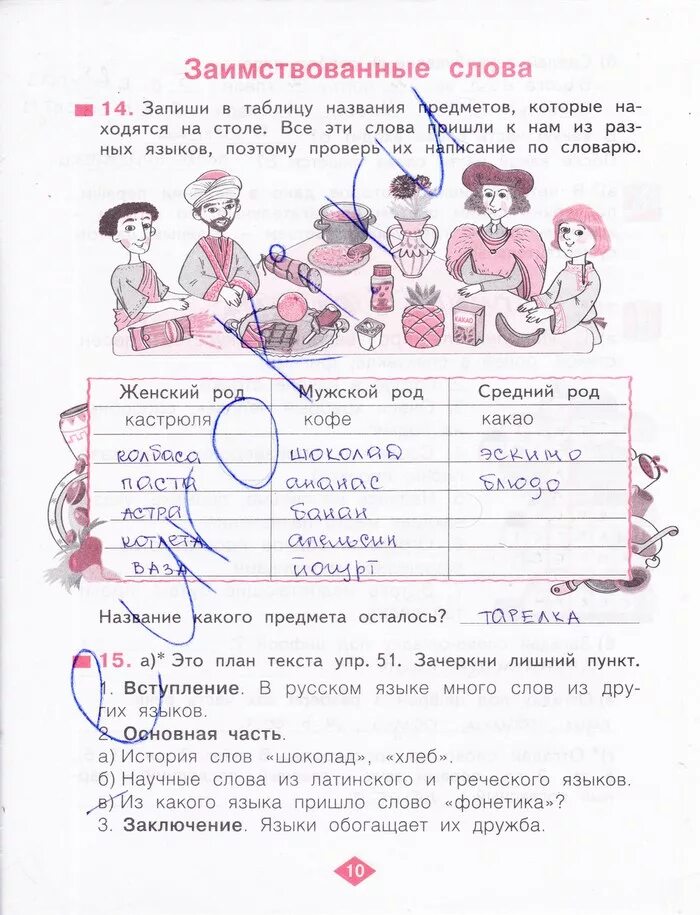 Заимствованные слова
14. Запиши в таблицу названия предметов, которые на-
ходятся на столе. Все эти слова пришли к нам из раз-
ных языков, поэтому проверь их написание по словарю.
КАКАО
Женский род Мужской род Средний род
кастрюля кофе какао
колбаса шоколад эскимо
паста ананас блюдо
астра банан
котлета апельсин
ваза йогурт
Название какого предмета осталось? тарелка
15. а)* Это план текста упр. 51. Зачеркни лишний пункт.
1. Вступление. В русском языке много слов из дру-
гих языков.
2. Основная часть.
а) История слов «шоколад», «хлеб».
б) Научные слова из латинского и греческого языков.
в) Из какого языка пришло слово «фонетика»?
3. Заключение. Языки обогащает их дружба.
10